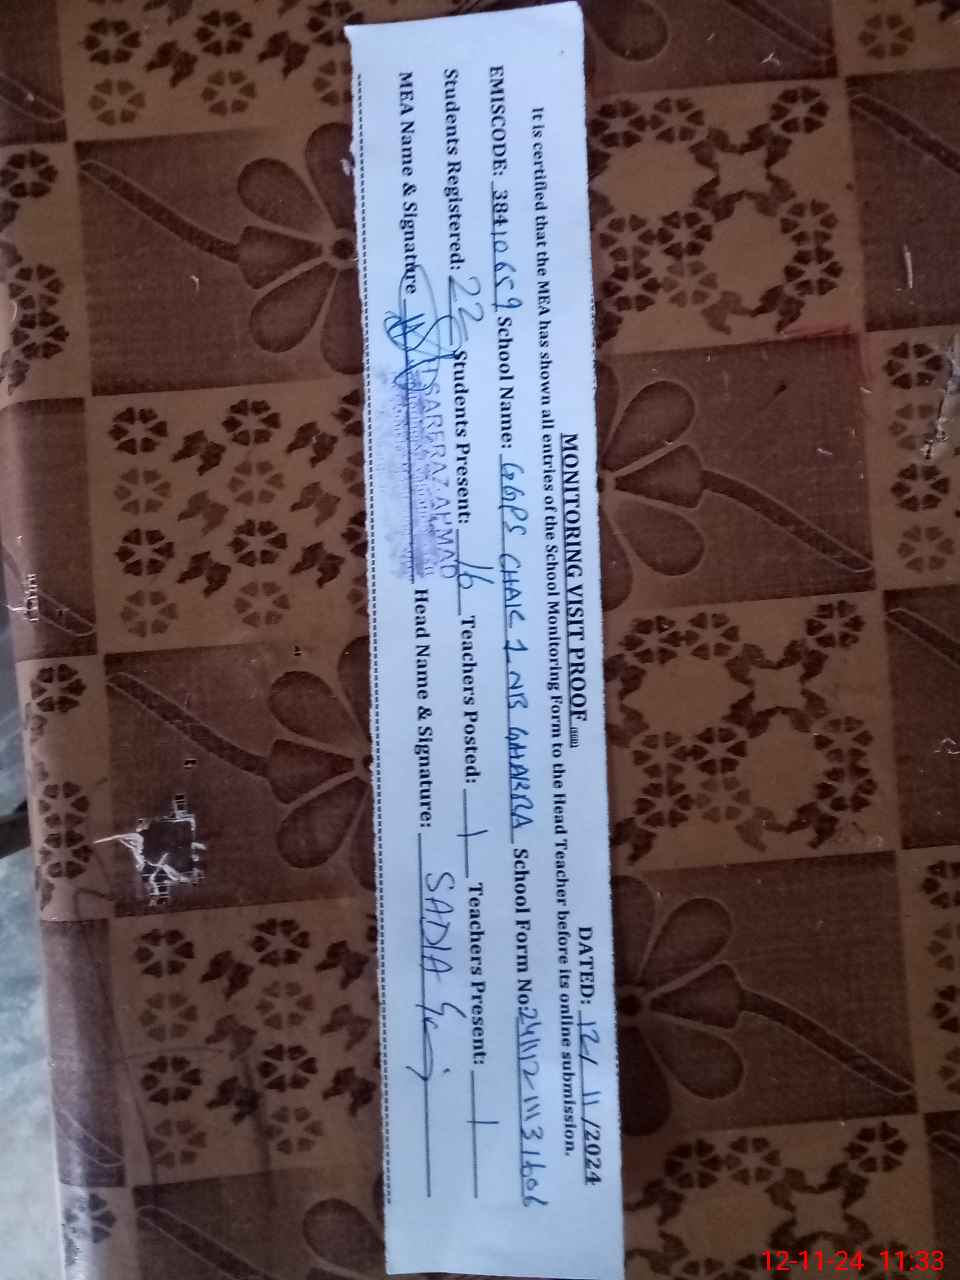 MONITORING VISIT PROOF
DATED: 12/ 11 /2024
It is certified that the MEA has shown all entries of the School Monitoring Form to the Head Teacher before its online submission.
EMISCODE: 38410659 School Name: GGPS CHAK 1 NB GHARRA School Form No:
Students Registered: 22 Students Present: 16 Teachers Posted: 1 Teachers Present: 1
MEA Name & Signature SARFRAZ AHMAD Head Name & Signature: SADIA
12-11-24 11:33